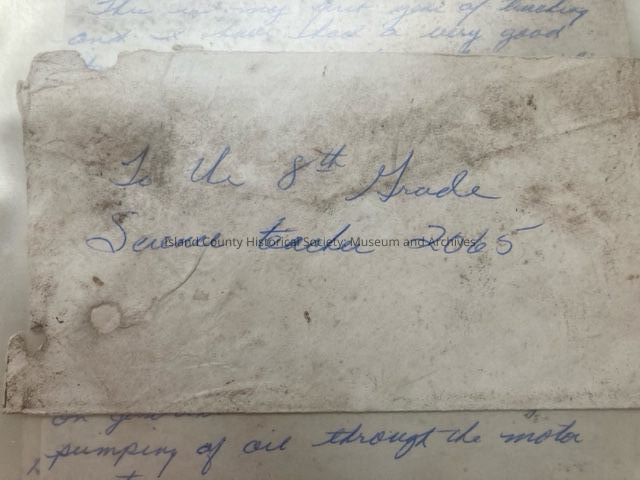 This is my first year of teaching
and I have had a very good
To the 8th Grade
Science teacher 2065
Island County Historical Society: Museum and Archives
pumping of oil through the motor